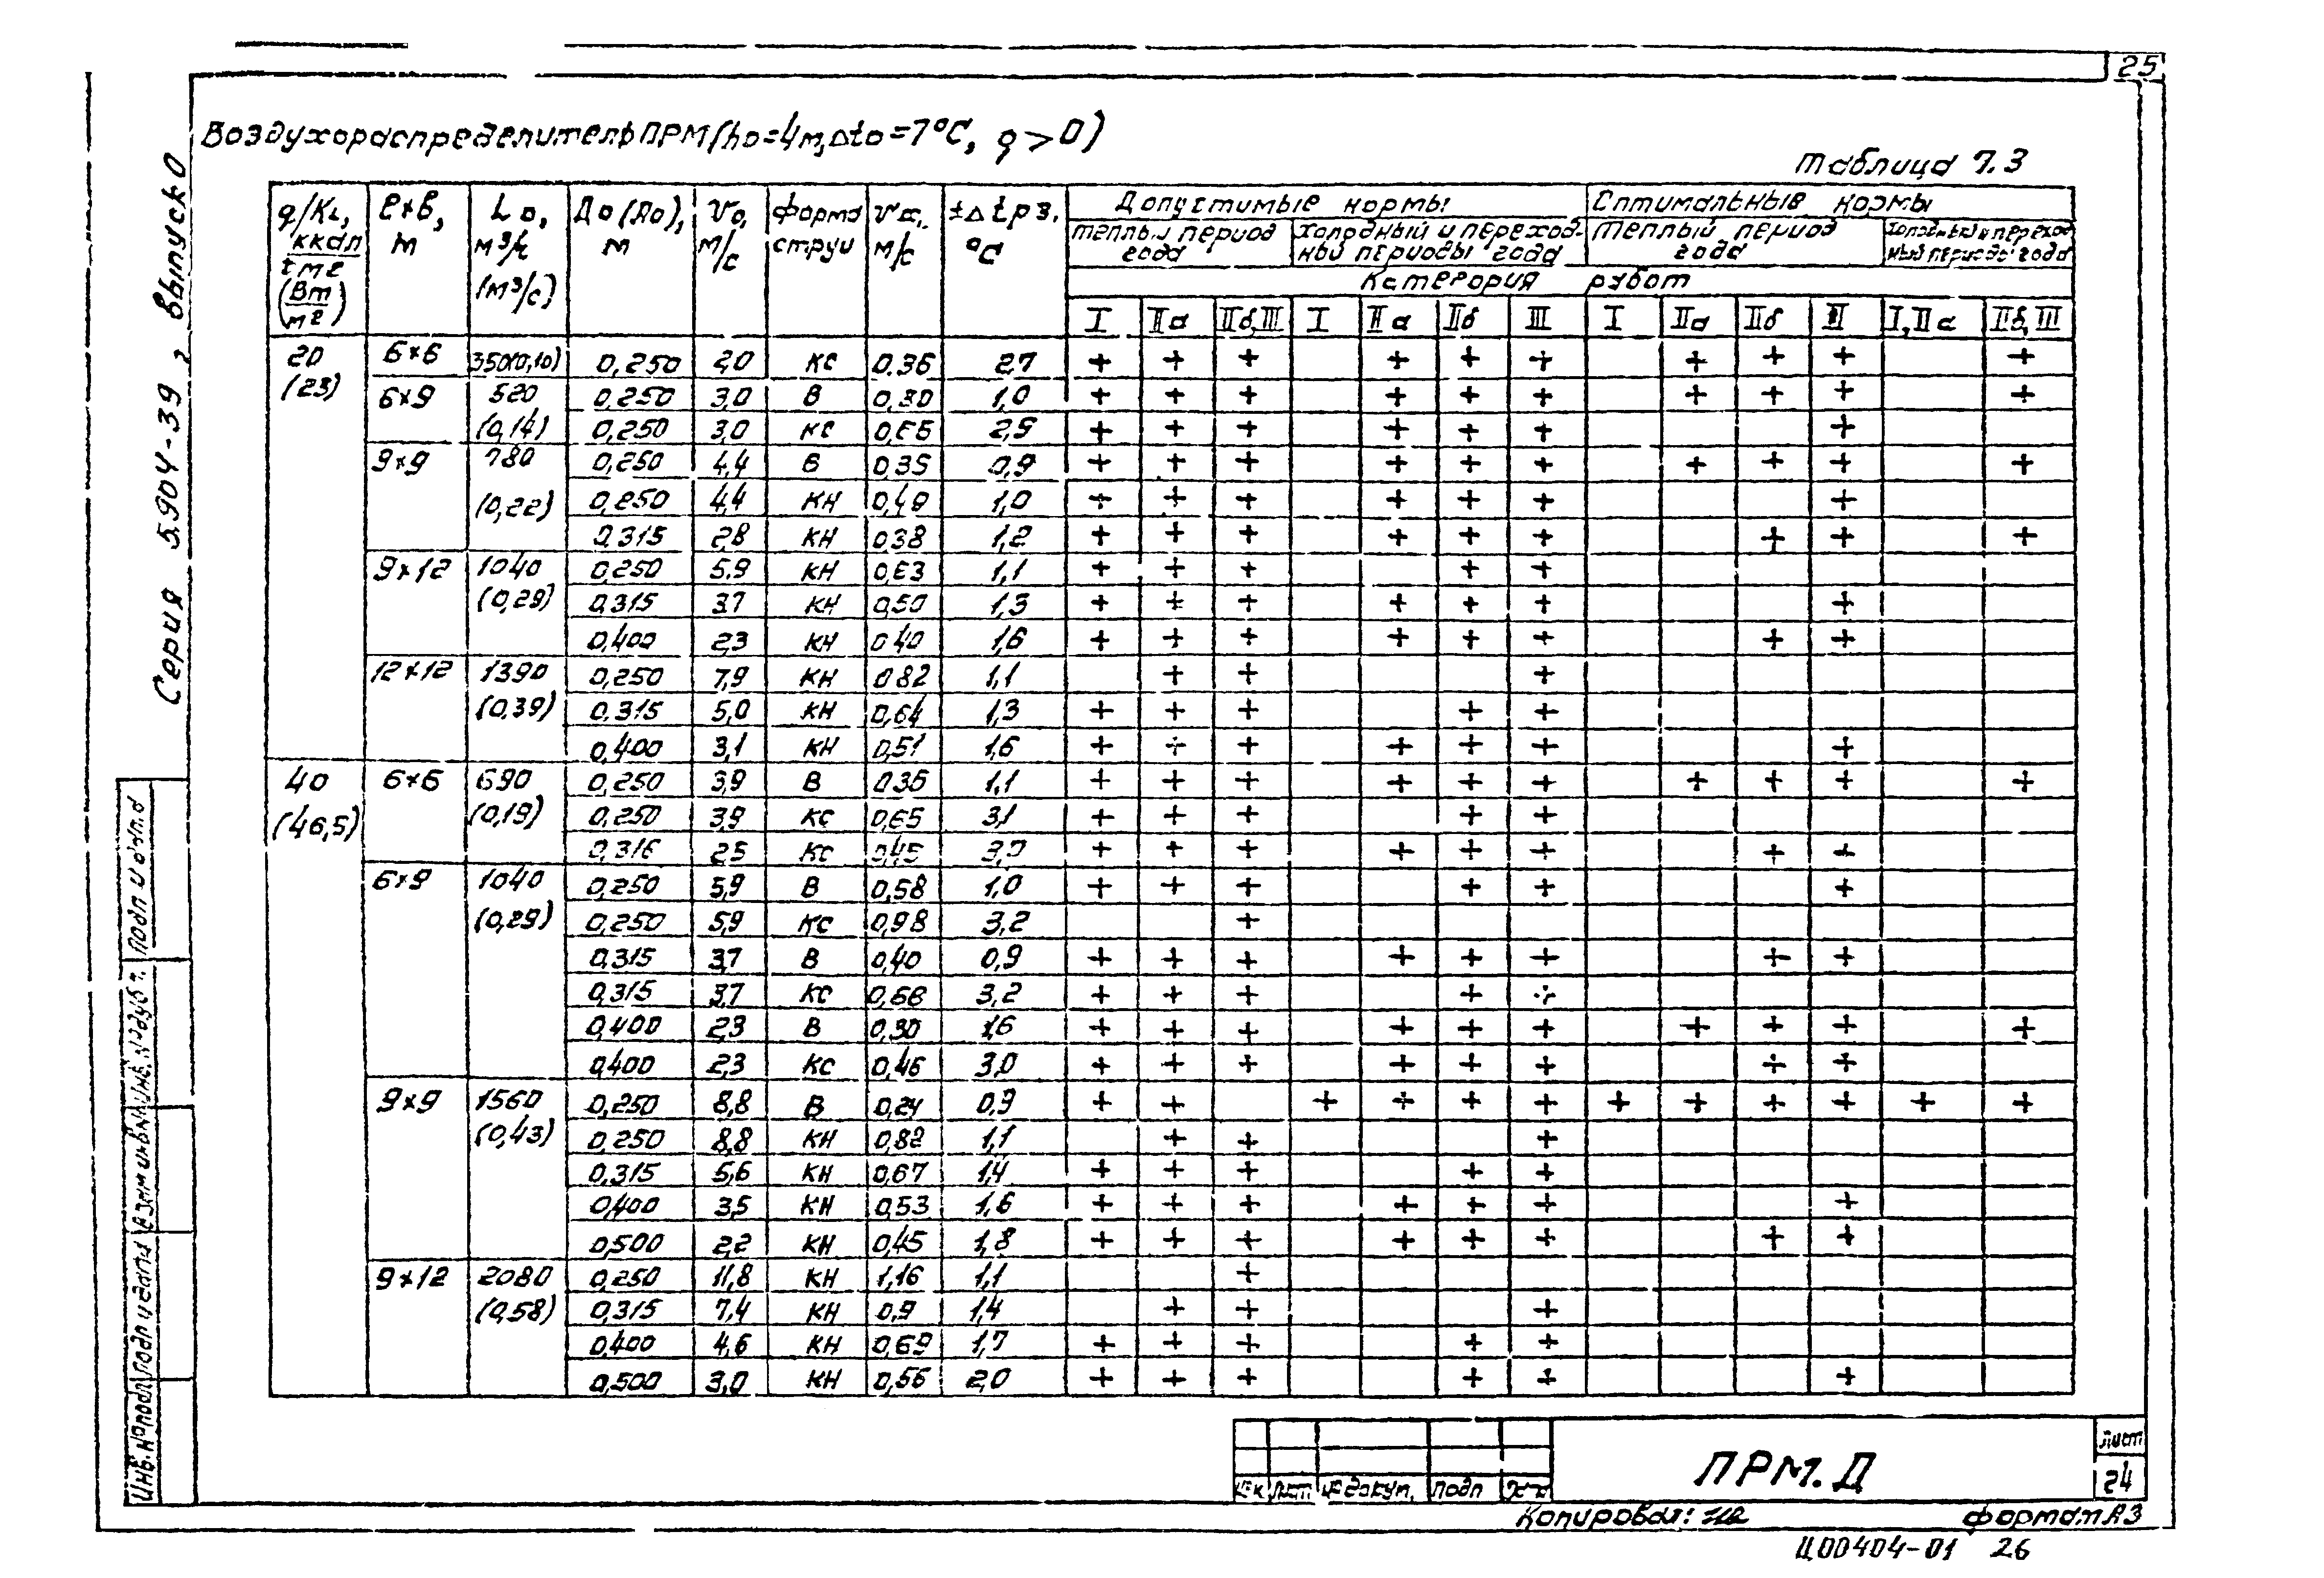 25
Воздухораспределитель ПРМ (ho=4м, Δto=7°С, q>0)
Таблица 7.3
Серия 5.904-39, выпуск 0
q/KL, ккал/чм2 (Вт/м2) | l×b, м | Lo, м3/ч (м3/с) | До(До), м | vo, м/с | форма струи | vx, м/с | ±Δtрз, °С | Допустимые нормы | Оптимальные нормы
теплый период года | холодный и переходный периоды года | теплый период года | холодный и переходный периоды года
Категория работ
I | IIа | IIб,III | I | IIа | IIб | III | I | IIа | IIб | III | I,IIа | IIб,III
20 (23) | 6×6 | 350(0,10) | 0,250 | 2,0 | КС | 0,36 | 2,7 | + | + | + | | + | + | + | | + | + | + | | +
6×9 | 520 | 0,250 | 3,0 | В | 0,30 | 1,0 | + | + | + | | + | + | + | | + | + | + | | +
(0,14) | 0,250 | 3,0 | КС | 2,9 | + | + | + | | + | + | + | | | | + | |
9×9 | 780 | 0,250 | 4,4 | В | 0,35 | 0,9 | + | + | + | | + | + | + | | + | + | + | | +
(0,22) | 0,250 | 4,4 | КН | 0,49 | 1,0 | + | + | + | | + | + | + | | | | + | |
0,315 | 2,8 | КН | 0,38 | 1,2 | + | + | + | | + | + | + | | | + | + | | +
9×12 | 1040 | 0,250 | 5,9 | КН | 0,63 | 1,1 | + | + | + | | | + | + | | | | | |
(0,29) | 0,315 | 3,7 | КН | 0,50 | 1,3 | + | + | + | | + | + | + | | | | + | |
0,400 | 2,3 | КН | 0,40 | 1,6 | + | + | + | | + | + | + | | | + | + | |
12×12 | 1390 | 0,250 | 7,9 | КН | 0,82 | 1,1 | | + | + | | | | + | | | | | |
(0,39) | 0,315 | 5,0 | КН | 0,64 | 1,3 | + | + | + | | | + | + | | | | | |
0,400 | 3,1 | КН | 0,51 | 1,6 | + | + | + | | + | + | + | | | | + | |
40 (46,5) | 6×6 | 690 | 0,250 | 3,9 | В | 0,36 | 1,1 | + | + | + | | + | + | + | | + | + | + | | +
(0,19) | 0,250 | 3,9 | КС | 0,65 | 3,1 | + | + | + | | | + | + | | | | | |
0,316 | 2,5 | КС | 0,45 | 3,0 | + | + | + | | + | + | + | | | + | + | |
6×9 | 1040 | 0,250 | 5,9 | В | 0,58 | 1,0 | + | + | + | | | + | + | | | | + | |
(0,29) | 0,250 | 5,9 | КС | 0,98 | 3,2 | | | + | | | | | | | | | |
0,315 | 3,7 | В | 0,40 | 0,9 | + | + | + | | + | + | + | | | + | + | |
0,315 | 3,7 | КС | 0,66 | 3,2 | + | + | + | | | + | + | | | | | |
0,400 | 2,3 | В | 0,30 | 1,6 | + | + | + | | + | + | + | | + | + | + | | +
0,400 | 2,3 | КС | 0,46 | 3,0 | + | + | + | | + | + | + | | | + | + | |
9×9 | 1560 | 0,250 | 8,8 | В | 0,24 | 0,9 | + | + | | + | + | + | + | + | + | + | + | + | +
(0,43) | 0,250 | 8,8 | КН | 0,82 | 1,1 | | + | + | | | | + | | | | | |
0,315 | 5,6 | КН | 0,67 | 1,4 | + | + | + | | | + | + | | | | | |
0,400 | 3,5 | КН | 0,53 | 1,6 | + | + | + | | + | + | + | | | | + | |
0,500 | 2,2 | КН | 0,45 | 1,8 | + | + | + | | + | + | + | | | + | + | |
9×12 | 2080 | 0,250 | 11,8 | КН | 1,16 | 1,1 | | | + | | | | | | | | | |
(0,58) | 0,315 | 7,4 | КН | 0,9 | 1,4 | | + | + | | | | + | | | | | |
0,400 | 4,6 | КН | 0,69 | 1,7 | + | + | + | | | + | + | | | | | |
0,500 | 3,0 | КН | 0,56 | 2,0 | + | + | + | | | + | + | | | | + | |
Инв.№подл
Подп и дата
Взам инв.№
Инв.№дубл.
Подп и дата
Лист №докум. Подп
ПРМ.Д
Лист
24
Копировал:
формат А3
Ц00404-01 26